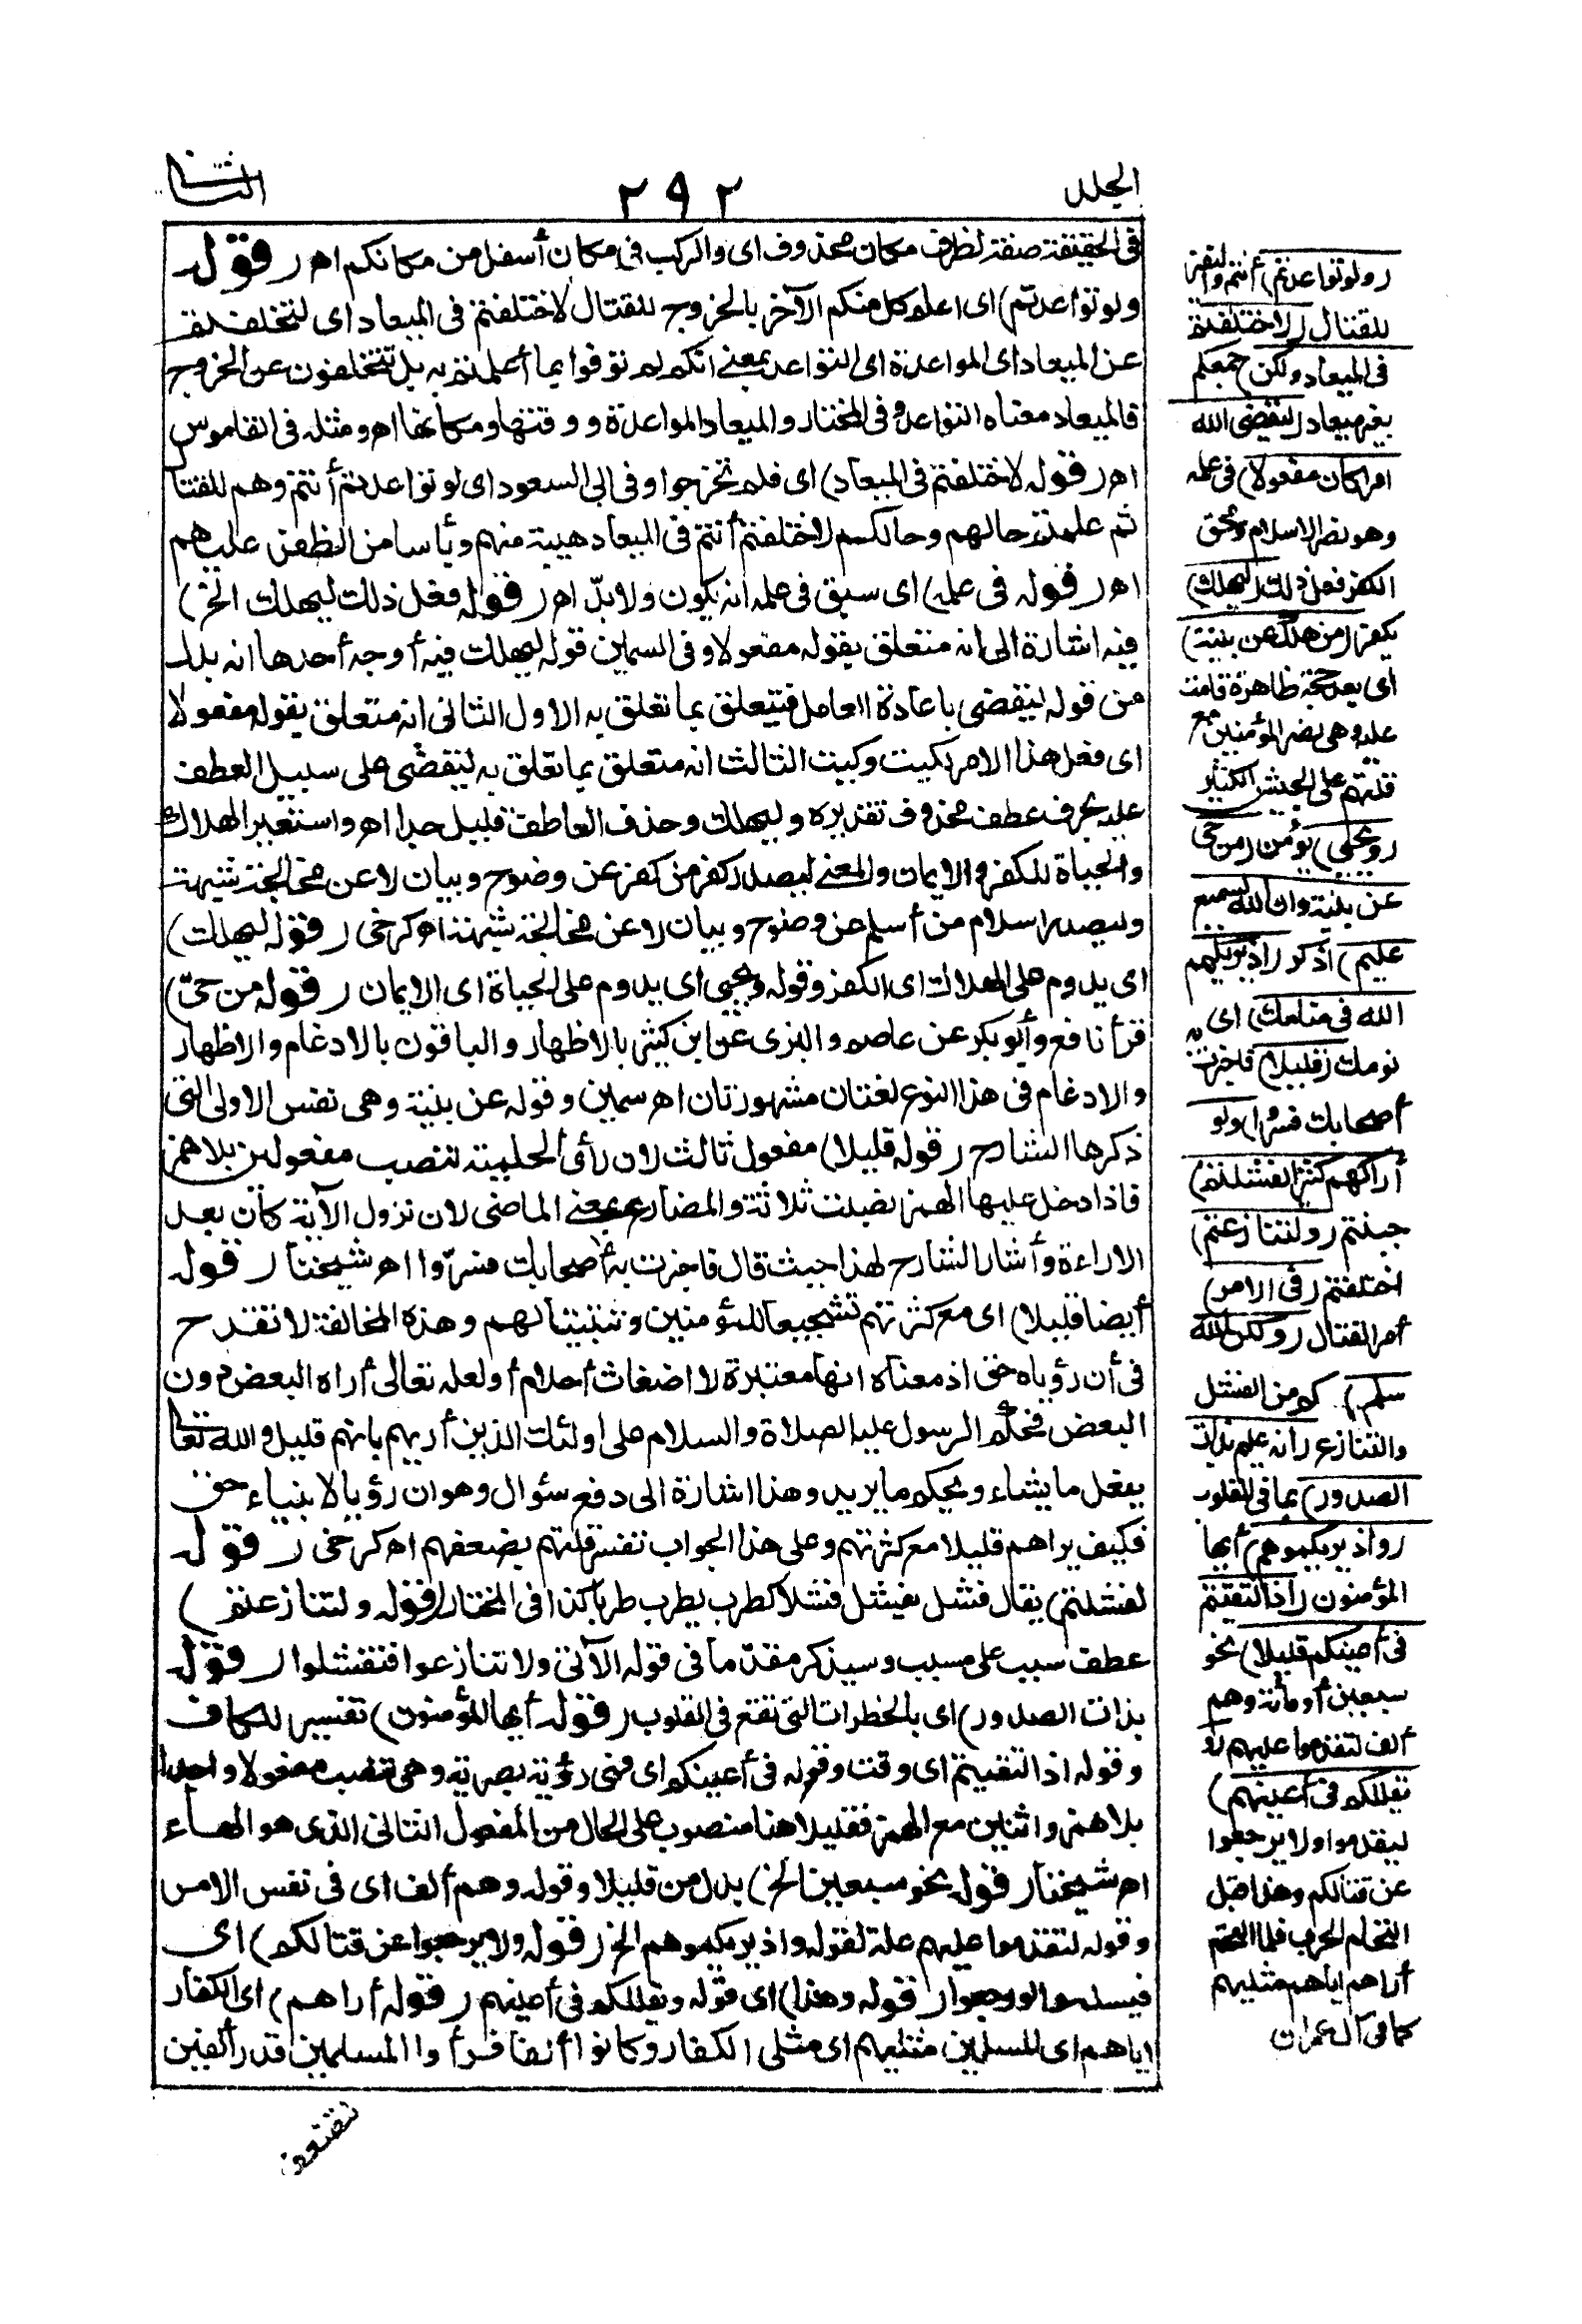 الجلد
٢٩٢
الثانى
فى الحقيقة صفة لظرف مكان محذوف اى والركب فى مكان أسفل من مكانكم اهـ (قوله
ولو تواعدتم) اى اعلم كل منكم الآخر بالخروج للقتال لاختلفتم فى الميعاد اى لتخلفتم
عن الميعاد اى المواعدة اى التواعد بمعنى انكم لم توفوا بما أعلمتم به بل تتخلفون عن الخروج
فالميعاد معناه التواعد وفى المختار والميعاد المواعدة ووقتها ومكانها اهـ ومثله فى القاموس
اهـ (قوله لاختلفتم فى الميعاد) اى فلم تخرجوا وفى ابى السعود اى لو تواعدتم أنتم وهم للقتال
ثم علمتم حالهم وحالكم لاختلفتم أنتم فى الميعاد هيبة منهم ويأسا من الظفر عليهم
اهـ (قوله فى علمه) اى سبق فى علمه انه يكون ولا بدّ اهـ (قوله فعل ذلك ليهلك الخ)
فيه اشارة الى انه متعلق بقوله مفعولا وفى السمين قوله ليهلك فيه أوجه أحدها انه بدل
من قوله ليقضى باعادة العامل فيتعلق بما تعلق به الاول الثانى انه متعلق بقوله مفعولا
اى فعل هذا الامر بكيت وكيت الثالث انه متعلق بما تعلق به ليقضى على سبيل العطف
عليه بحرف عطف محذوف تقديره وليهلك وحذف العاطف قليل جدا اهـ واستعير الهلاك
والحياة للكفر والايمان والمعنى ليصدر كفر من كفر عن وضوح وبيان لا عن مخالجة شبهة
وليصدر اسلام من أسلم عن وضوح وبيان لا عن مخالجة شبهة اهـ كرخى (قوله ليهلك)
اى يدوم على الهلاك اى الكفر وقوله ويحيى اى يدوم على الحياة اى الايمان (قوله من حىّ)
قرأ نافع وأبو بكر عن عاصم والبزى عن ابن كثير بالاظهار والباقون بالادغام والاظهار
والادغام فى هذا النوع لغتان مشهورتان اهـ سمين وقوله عن بينة وهى نفس الاولى التى
ذكرها الشارح (قوله قليلا) مفعول ثالث لان رأى الحلمية تنصب مفعولين بلا همز
فاذا دخل عليها الهمز نصبت ثلاثة والمضارع بمعنى الماضى لان نزول الآية كان بعد
الاراءة وأشار الشارح لهذا حيث قال فاخبرت به أصحابك فسرّوا اهـ شيخنا (قوله
أيضا قليلا) اى مع كثرتهم تشجيعا للمؤمنين وتثبيتا لهم وهذه المخالفة لا تقدح
فى أن رؤياه حق اذ معناه انها معتبرة لا اضغاث أحلام أو لعله تعالى أراه البعض دون
البعض فحكم الرسول عليه الصلاة والسلام على اولئك الذين أريهم بانهم قليل والله تعالى
يفعل ما يشاء ويحكم ما يريد وهذا اشارة الى دفع سؤال وهو ان رؤيا الانبياء حق
فكيف يراهم قليلا مع كثرتهم وعلى هذا الجواب تفسر قلتهم بضعفهم اهـ كرخى (قوله
لفشلتم) يقال فشل يفشل فشلا كطرب يطرب طربا كذا فى المختار (قوله ولتنازعتم)
عطف سبب على مسبب وسيذكر مقدّما فى قوله الآتى ولا تنازعوا فتفشلوا (قوله
بذات الصدور) اى بالخطرات التى تقع فى القلوب (قوله أيها المؤمنون) تفسير للكاف
وقوله اذ التقيتم اى وقت وقوله فى أعينكم اى فهى رؤية بصرية وهى تنصب مفعولا واحدا
بلا همز واثنين مع الهمزة فقليلا هنا منصوب على الحال من المفعول الثانى الذى هو الهاء
اهـ شيخنا (قوله نحو سبعين الخ) بدل من قليلا وقوله وهم ألف اى فى نفس الامر
وقوله لتقدموا عليهم علة لقوله واذ يريكموهم الخ (قوله ولا يرجعوا عن قتالكم) اى
فيسلموا لو رجعوا (قوله وهذا) اى قوله ويقللكم فى أعينهم (قوله أراهم) اى الكفار
اياهم اى المسلمين مثليهم اى مثلى الكفار وكانوا ألفا فرأوا المسلمين قدر ألفين
(ولو تواعدتم) أنتم والنفير
للقتال (لاختلفتم
فى الميعاد ولكن) جمعكم
بغير ميعاد (ليقضى الله
امرا كان مفعولا) فى علمه
وهو نصر الاسلام ومحق
الكفر فعل ذلك (ليهلك)
يكفر (من هلك عن بينة)
اى بعد حجة ظاهرة قامت
عليه وهى نصر المؤمنين مع
قلتهم على الجيش الكثير
(ويحيى) يؤمن (من حى
عن بينة وان الله لسميع
عليم) اذكر (اذ يريكهم
الله فى منامك) اى
نومك (قليلا) فاخبرت به
أصحابك فسروا (ولو
أراكهم كثيرا لفشلتم)
جبنتم (ولتنازعتم)
اختلفتم (فى الامر)
أمر القتال (ولكن الله
سلم) كم من الفشل
والتنازع (انه عليم بذات
الصدور) بما فى القلوب
(واذ يريكموهم) أيها
المؤمنون (اذ التقيتم
فى أعينكم قليلا) نحو
سبعين أو مائة وهم
ألف لتقدموا عليهم (و
يقللكم فى أعينهم)
ليقدموا ولا يرجعوا
عن قتالكم وهذا قبل
التحام الحرب فلما التحم
أراهم اياهم مثليهم
كما فى آل عمران